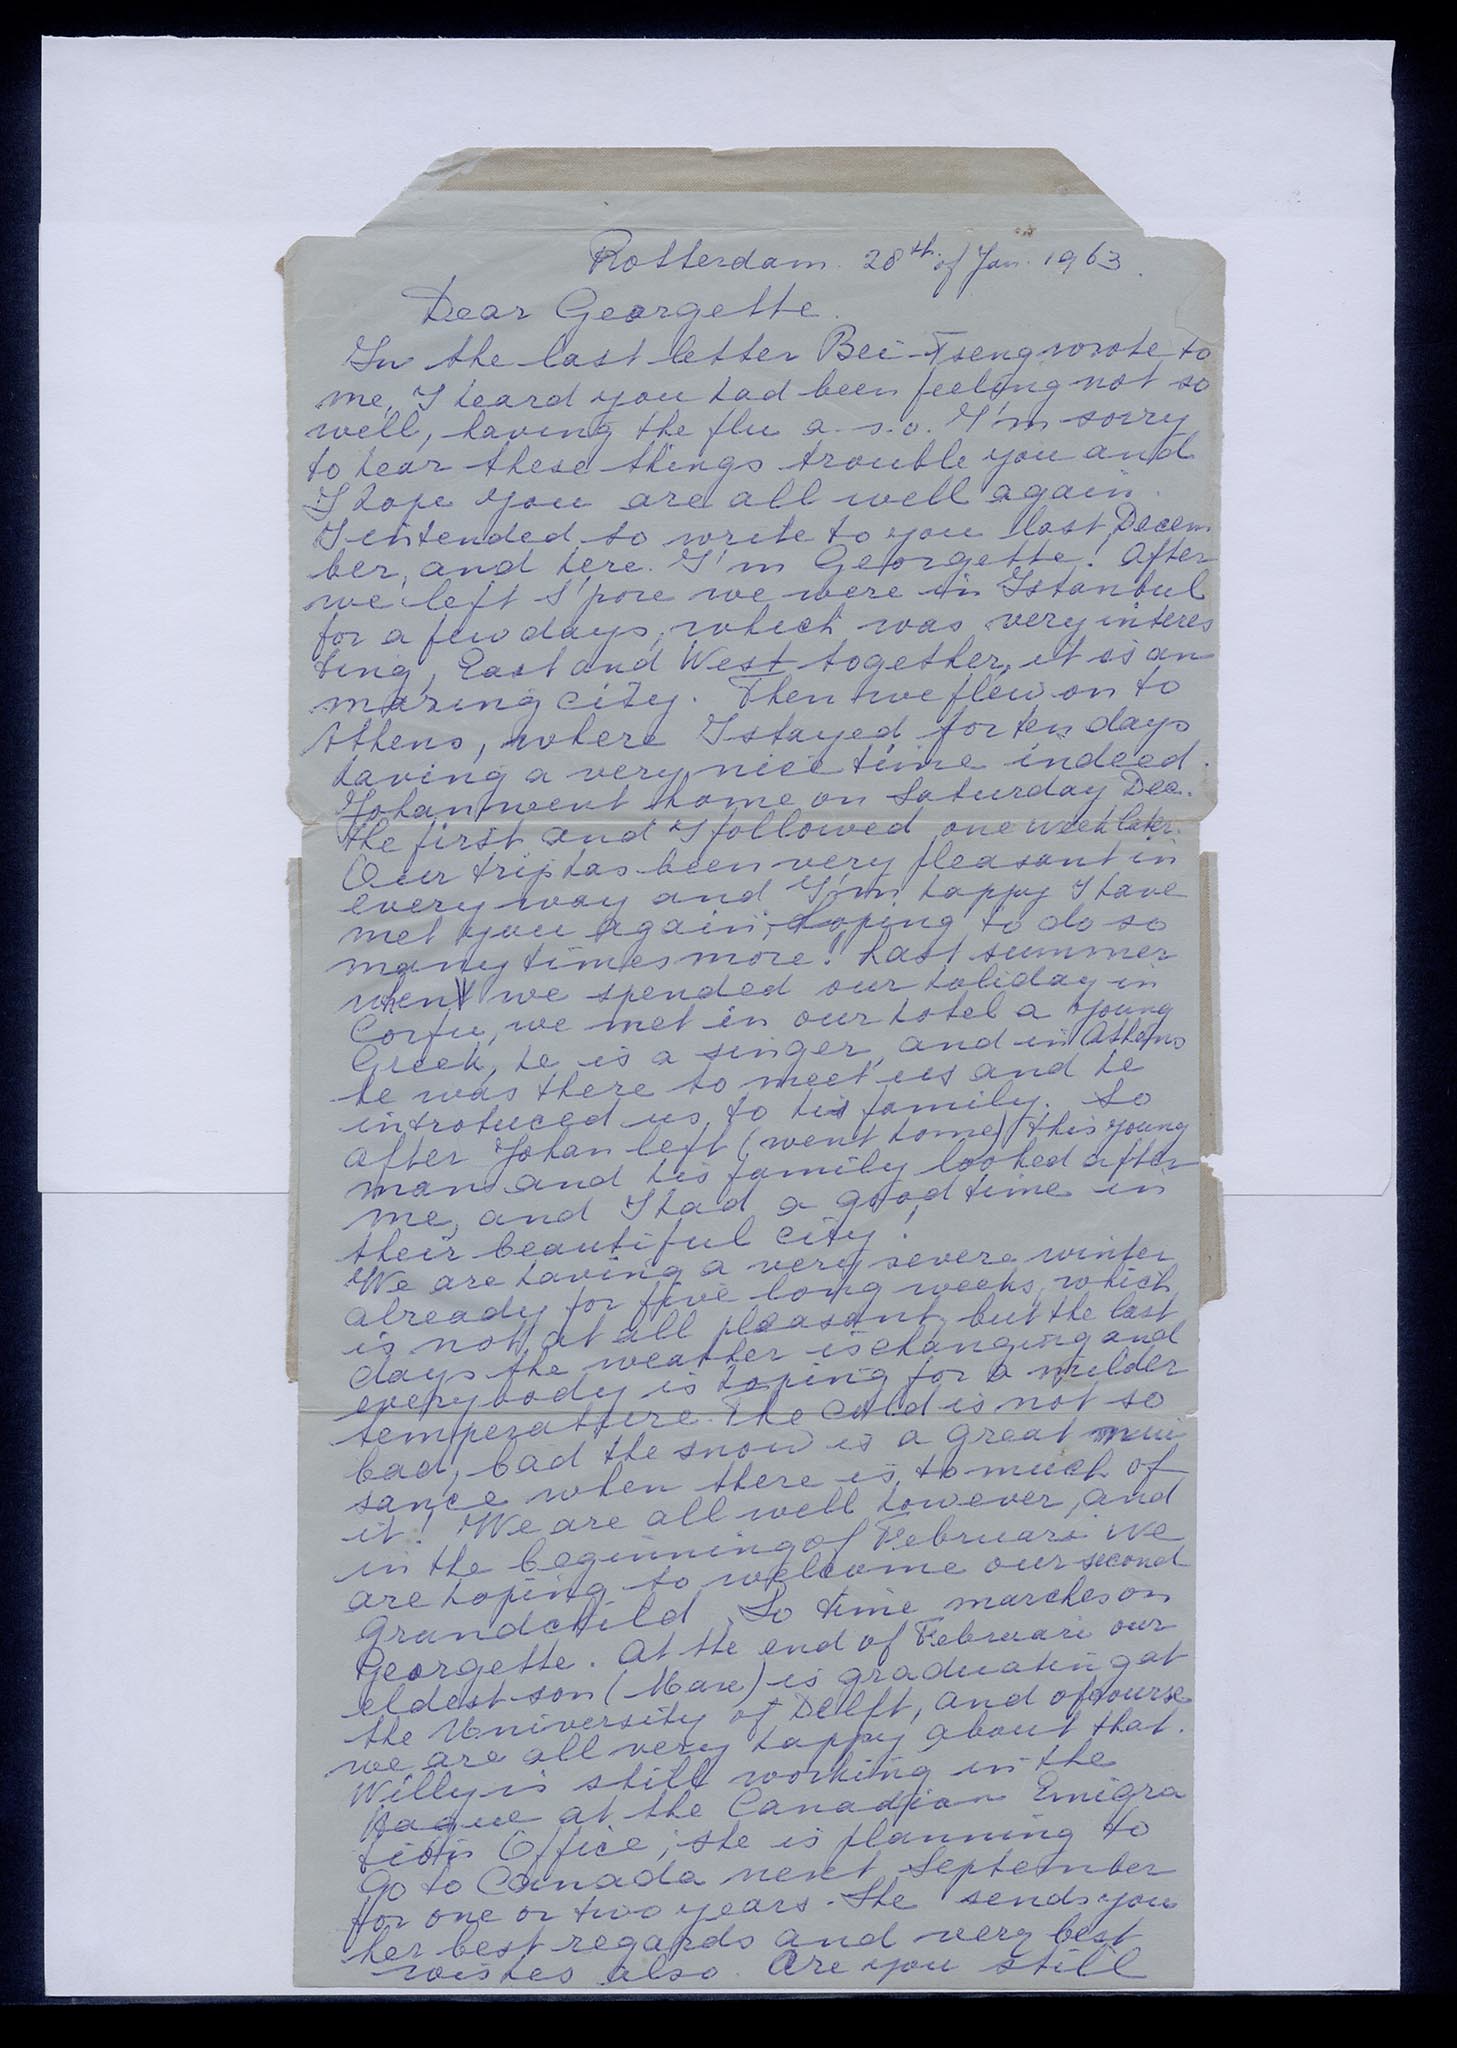 Rotterdam. 28th. of Jan. 1963.
Dear Georgette.
In the last letter Bei-Tseng wrote to
me, I heard you had been feeling not so
well, having the flu a.s.o. I'm sorry
to hear these things trouble you and
I hope you are all well again.
I intended to write to you last Decem
ber, and here I'm Georgette! After
we left S'pore we were in Istanbul
for a few days, which was very interes
ting, East and West together, it is an
mazing city. Then we flew on to
Athens, where I stayed for ten days
having a very nice time indeed.
Johan went home on Saturday Dec.
the first and I followed one week later.
Our trip has been very pleasant in
every way and I'm happy I have
met you again, hoping to do so
many times more! Last summer
when we spended our holiday in
Corfu, we met in our hotel a young
Greek, he is a singer, and in Athens
he was there to meet us and he
introduced us to his family. So
after Johan left (went home) this young
man and his family looked after
me, and I had a good time in
their beautiful city!
We are having a very severe winter
already for five long weeks, which
is not at all pleasant, but the last
days the weather is changing and
everybody is hoping for a milder
temperature. The cold is not so
bad, bad the snow is a great nui
sance when there is to much of
it! We are all well however, and
in the beginning of Februari we
are hoping to welcome our second
grandchild. So time marches on
Georgette. At the end of Februari our
eldest son () is graduating at
the University of Delft, and of course
we are all very happy about that.
Willy is still working in the
Hague at the Canadian Emigra
tion Office, she is planning to
go to Canada next September
for one or two years. She sends you
her best regards and very best
wishes also. Are you still